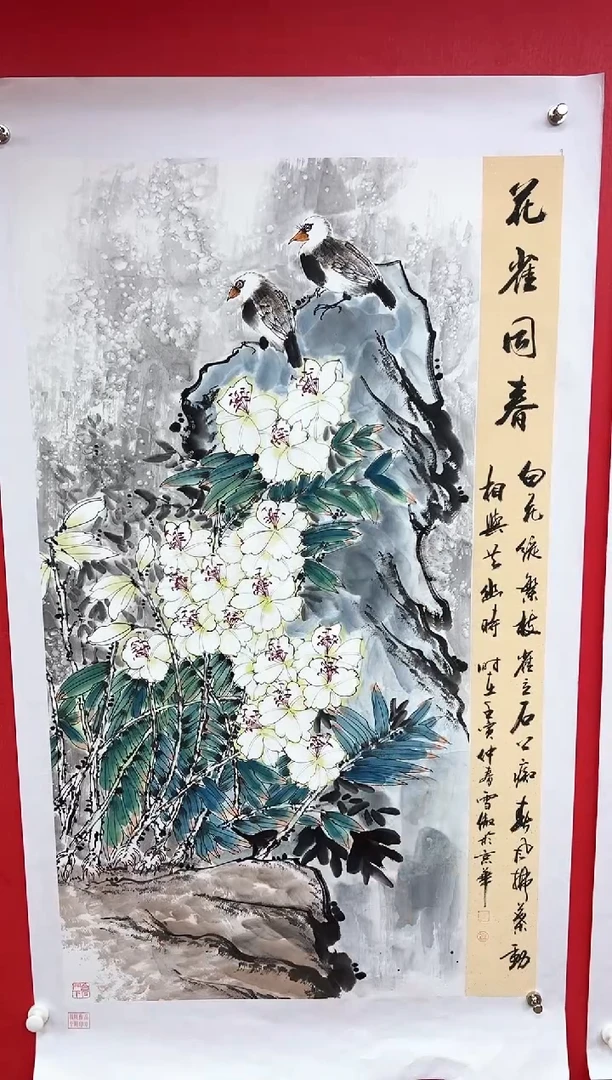 花雀同春
白花繁枝雀立石上痴春风拂蕊動
相與共幽時 时在壬寅仲春雪傲於京華